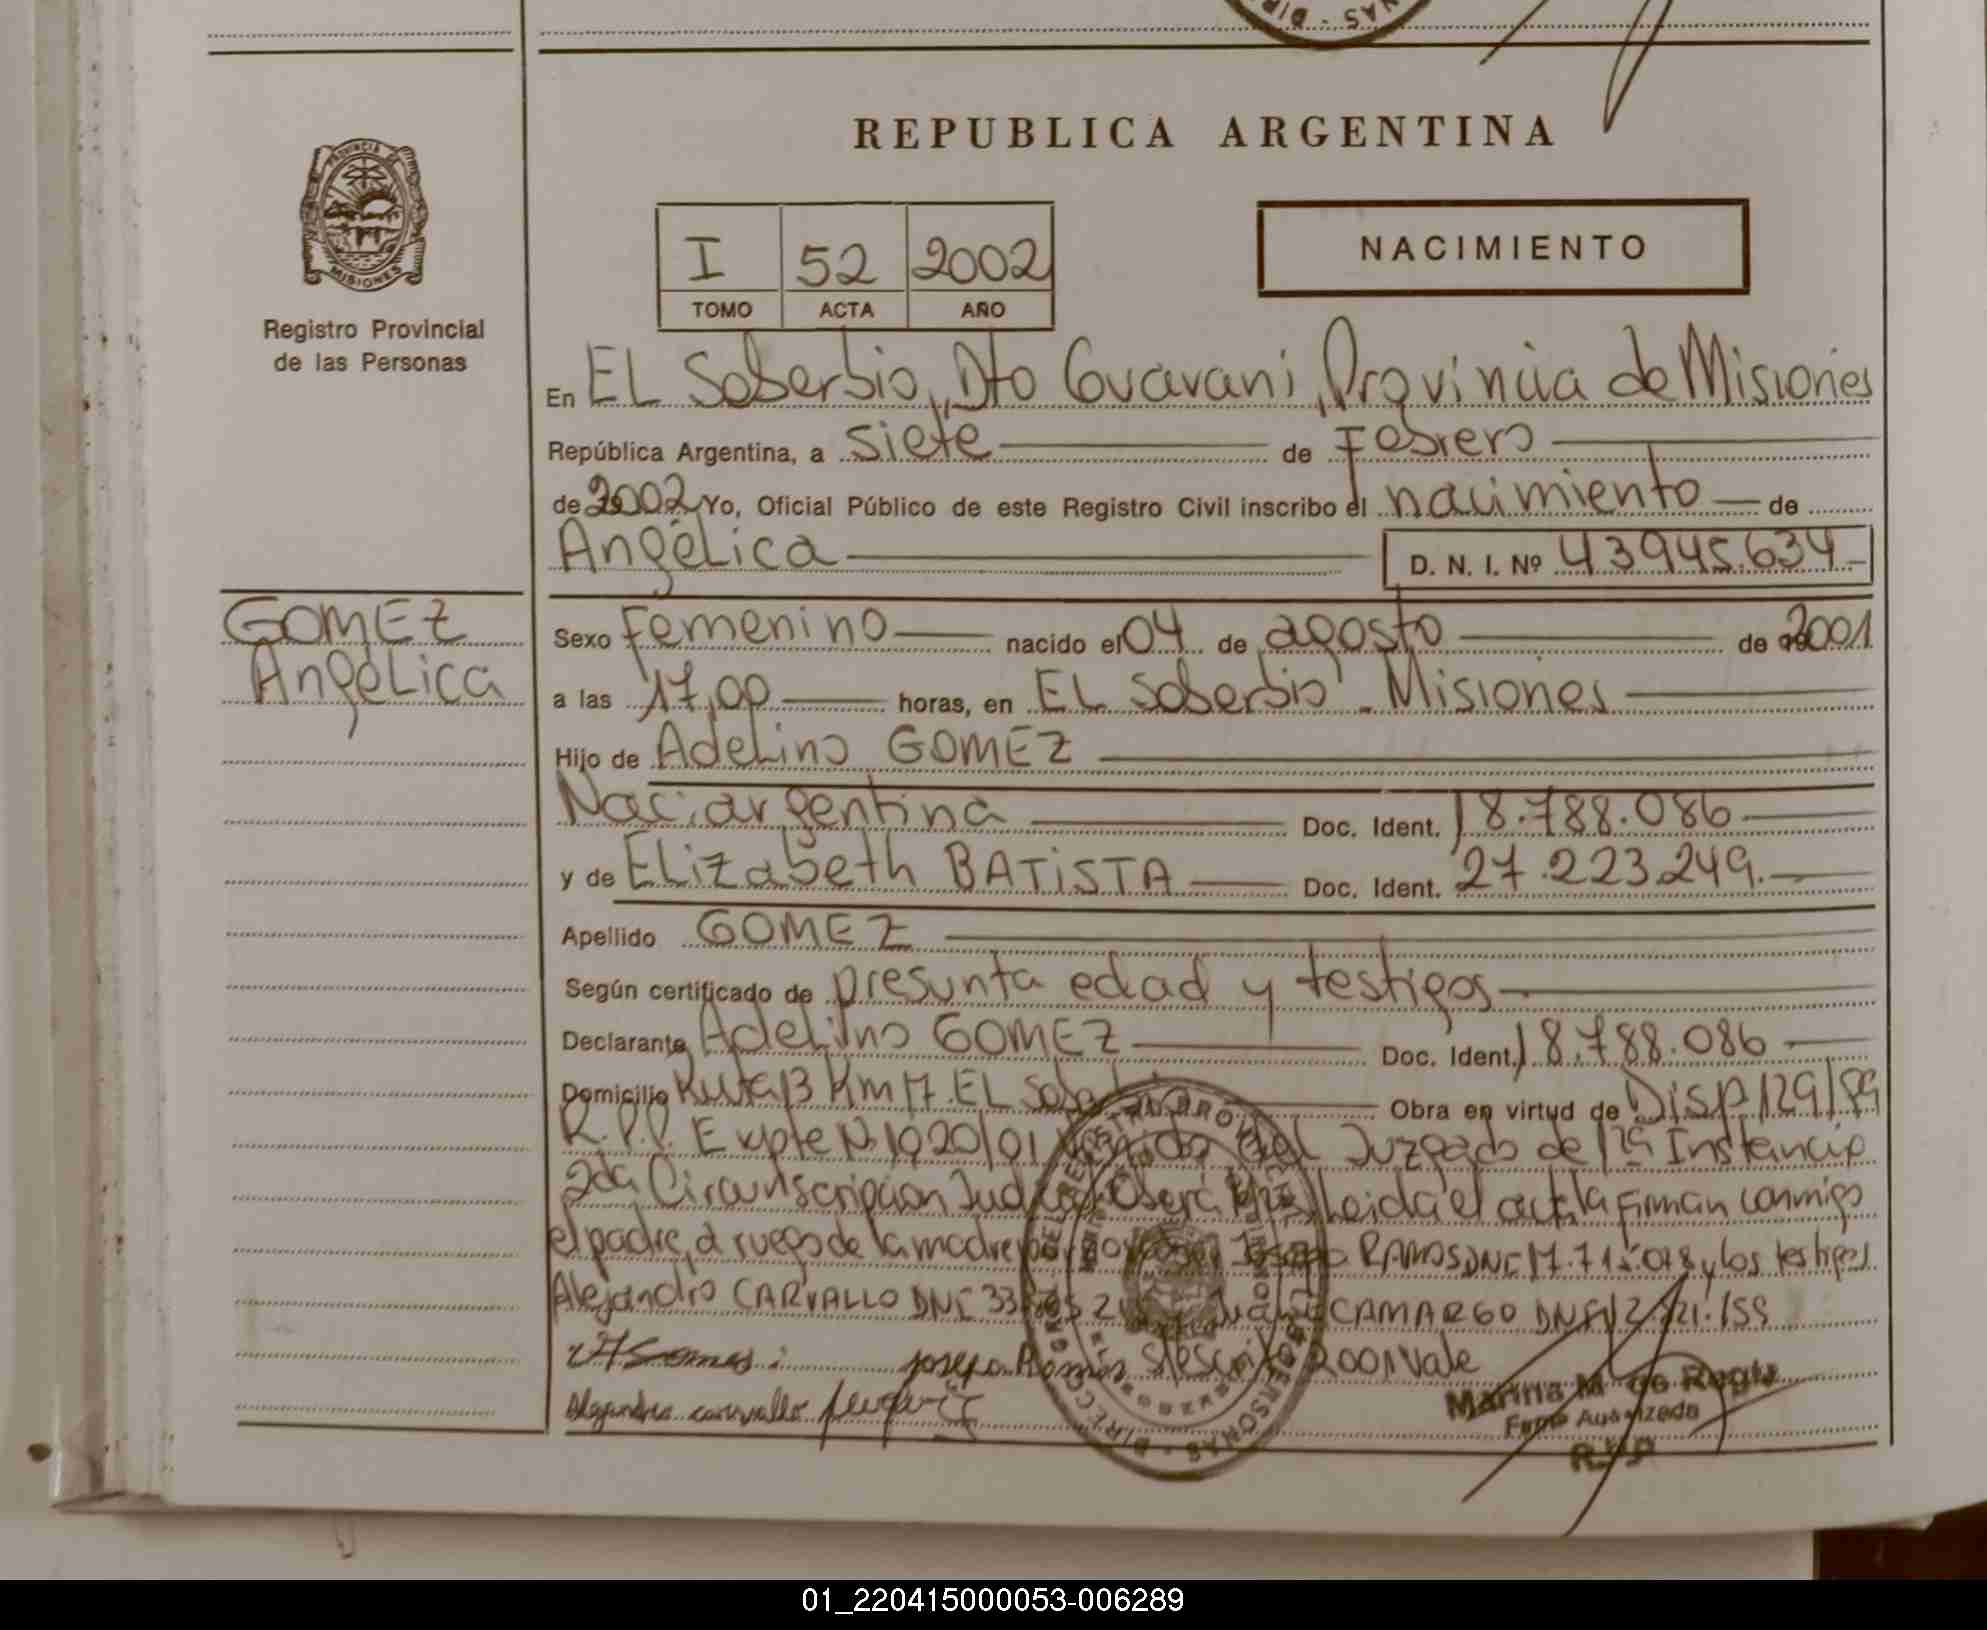 REPUBLICA ARGENTINA
PROVINCIA DE
MISIONES
Registro Provincial
de las Personas
I 52 2002
TOMO ACTA AÑO
NACIMIENTO
En EL Soberbio, Dto Guarani, Provincia de Misiones
República Argentina, a siete de Febrero
de 2002 Yo, Oficial Público de este Registro Civil inscribo el nacimiento de
Angélica D. N. I. Nº 43945.634
GOMEZ
Angélica
Sexo femenino nacido el 04 de agosto de 2001
a las 17,00 horas, en EL Soberbio - Misiones
Hijo de Adelino GOMEZ
Naci: argentina Doc. Ident. 18.788.086
y de Elizabeth BATISTA Doc. Ident. 27.223.249
Apellido GOMEZ
Según certificado de presunta edad y testigos
Declarante Adelino GOMEZ Doc. Ident. 18.788.086
Domicilio Ruta 13 Km 17. EL Obra en virtud de Disp 129/89
R.P.P. Expte Nº 1920/01 del Juzgado de 1ra Instancia
2da Circunscripcion Oberá Leida el acta la firman conmigo
el padre, a ruego de la madre por RAMOS DNI 17.715.018 y los testigos
Alejandro CARVALLO DNI CAMARGO DNI
Josefa Ramos 2001 Vale
Alejandro carvallo
Marina M. de
Firma Autorizada
01_220415000053-006289